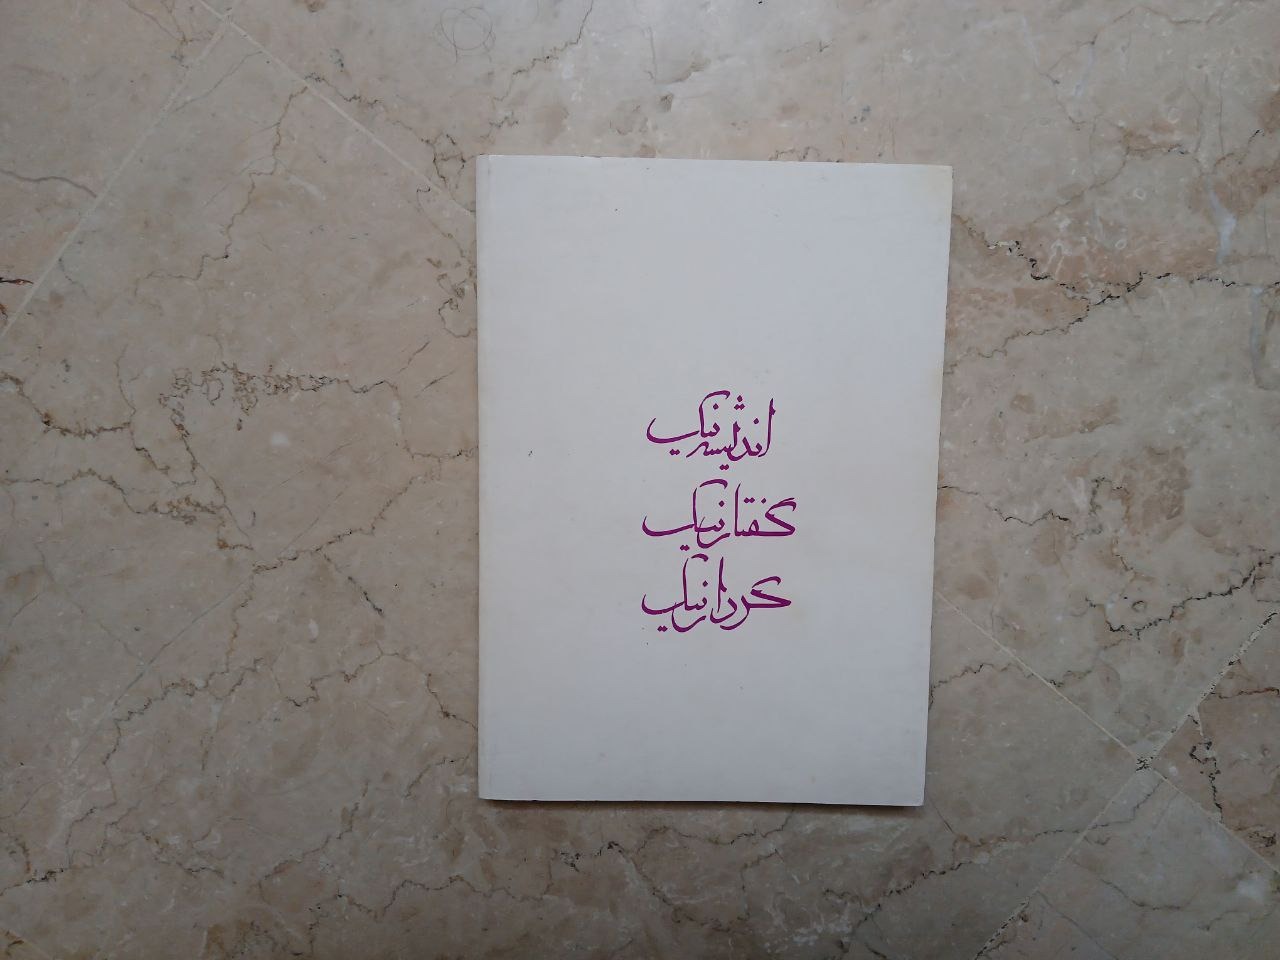 اندیشه نیک
گفتار نیک
کردار نیک